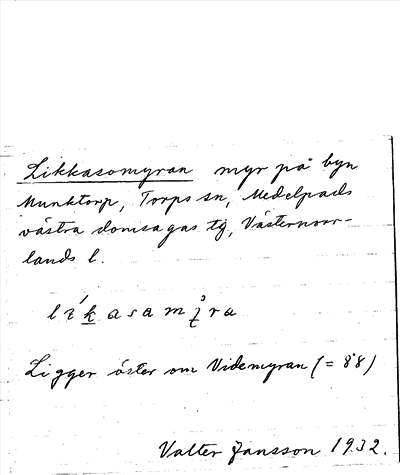 Likkasomyran myr på byn
Munktorp, Torps sn, Medelpads
västra domsagas tg, Västernorr-
lands l.
Ligger öster om Videmyran (= 88)
Valter Jansson 1932.